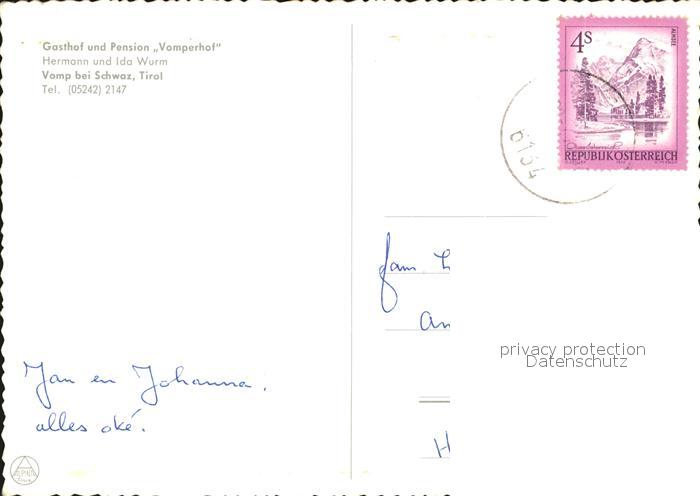 Gasthof und Pension „Vomperhof“
Hermann und Ida Wurm
Vomp bei Schwaz, Tirol
Tel. (05242) 2147
4S
ALMSEE
REPUBLIK ÖSTERREICH
6134
fam
An
privacy protection
Datenschutz
H
Jan en Johanna,
alles oké.
ALPINA